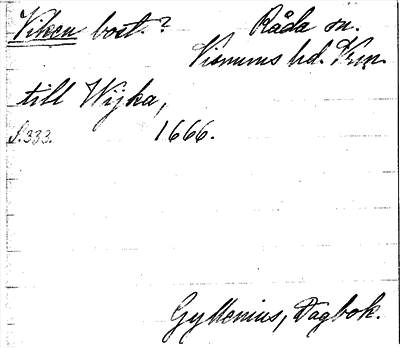 Viken bost. ? Råda sn.
Visnums hd. Vrm.
till Wijka,
S. 333. 1666.
Gyllenius, Dagbok.